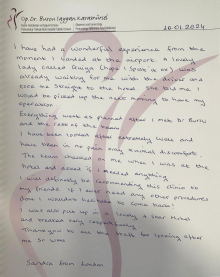 Op. Dr. Burcin
10.01.2024
I have had a wonderful experience from the
moment I landed at the airport. A lovely
lady called
already waiting for me with the driver and
took me straight to the hotel. She told me I
would be picked up the next morning to have my
operation.
Everything went as planned after I met Dr Burcin
and the rest of the team.
I have been looked after extremely well and
have been in no pain only minimal discomfort.
The team checked on me when I was at the
hotel and asked if I needed anything.
I will definitely be recommending this clinic to
my friends. If I ever need any other procedures
done I wouldn't hesitate to come back!
I was also put up in a lovely 4 star Hotel
and treated very
Thank you to all the staff for looking after
me so well
Sandra from London